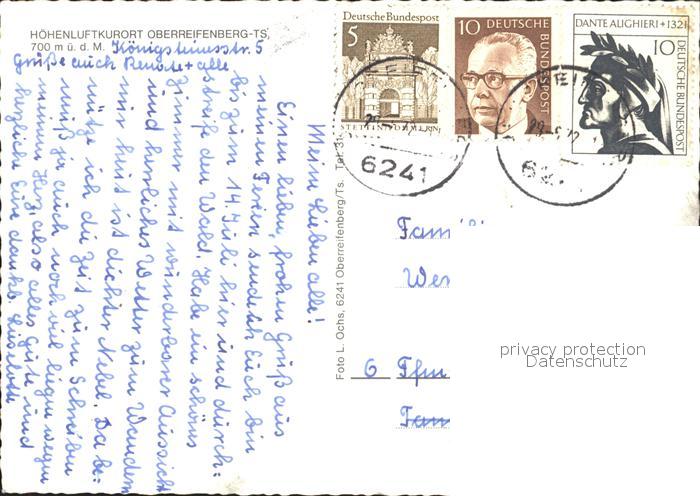 HÖHENLUFTKURORT OBERREIFENBERG-TS,
700 m ü. d. M. Königsteinerstr. 5
Grüße auch Renate + alle
Meine Lieben alle!
Einen lieben, frohen Gruß aus
meinen Ferien sendet Euch bin
bis zum 14. Juli hier und durch-
streife den Wald. Habe ein schönes
Zimmer mit wunderbarer Aussicht
und herrliches Wetter zum Wandern
nur heut ist dichter Nebel. Da be-
nütze ich die Zeit zum Schreiben
muß ja auch noch viel liegen wegen
meinem Herz, also alles Gute und
herzliche Eure dankb. Liselotte
Foto L. Ochs, 6241 Oberreifenberg/Ts. Tel. 3
Deutsche Bundespost
5
STETTIN/POMMERN
10
DEUTSCHE BUNDESPOST
DANTE ALIGHIERI + 1321
10
DEUTSCHE BUNDESPOST
6241
62
Fam
Wer
6 Ffm
privacy protection
Datenschutz